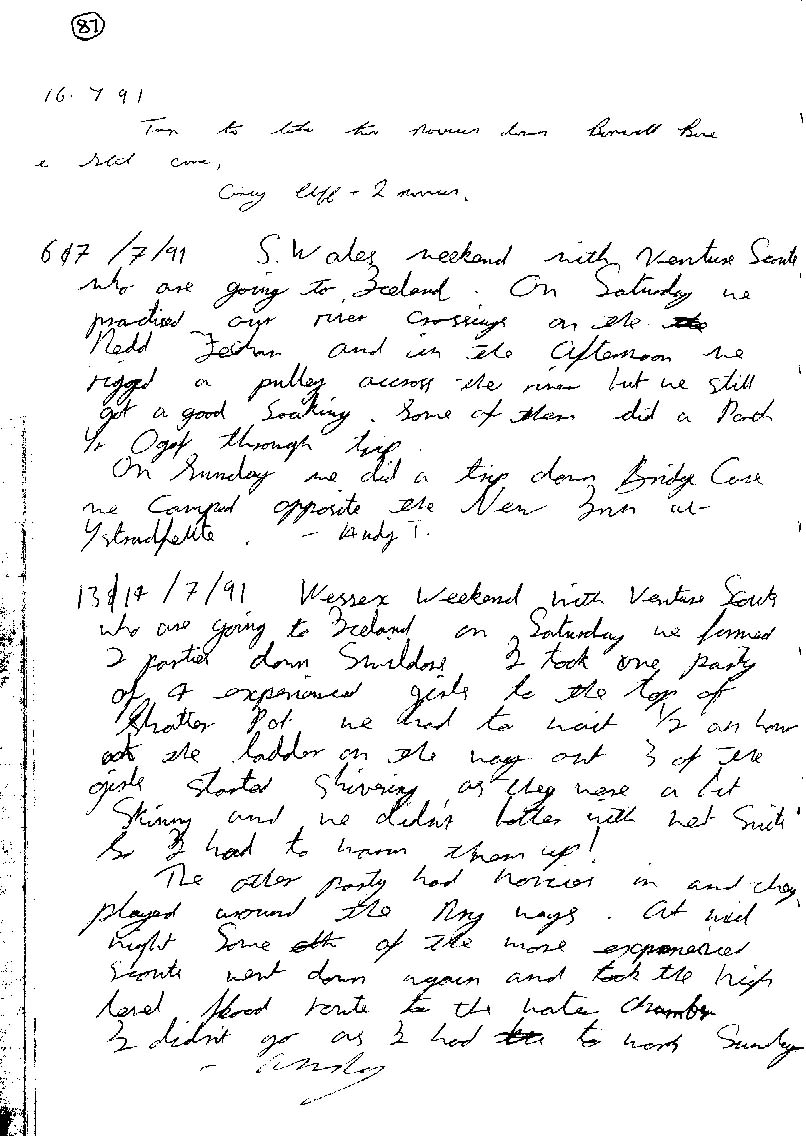 87
16. 7 91
to novices down
Cliff - 2 novices.
6&7 /7/91 S. Wales weekend with Venture Scouts
who are going to Iceland. On Saturday we
practised our river crossings on the
Nedd Fechan and in the afternoon we
rigged a pulley accross the river but we still
got a good soaking. Some of them did a Porth
Yr Ogof through trip.
On Sunday we did a trip down Bridge Cave
we camped opposite the New Inn at
Ystradfellte. - Andy T.
13&14 /7/91 Wessex Weekend with Venture Scouts
who are going to Iceland on Saturday we formed
2 parties down Swildons I took one party
of 4 experienced girls to the top of
Shatter Pot we had to wait 1/2 an hour
at the ladder on the way out 3 of the
girls started shivering as they were a bit
skinny and we didn't bother with wet suits
so I had to warm them up!
The other party had novices in and they
played around the dry ways. At mid
night some of the more experienced
scouts went down again and took the high
level flood route to the water chamber
I didn't go as I had to work Sunday
- Andy